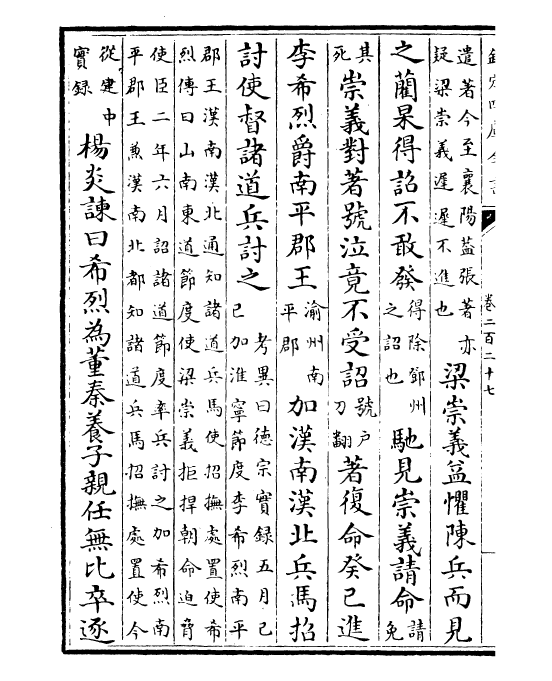 欽定四庫全書 卷二百二十七
遣著今至襄陽葢張著亦
疑梁崇義遲遲不進也
梁崇義益懼陳兵而見
之藺杲得詔不敢發
得除鄧州
之詔也
馳見崇義請命
請
免
其
死
崇義對著號泣竟不受詔
號户
刀翻
著復命癸巳進
李希烈爵南平郡王
渝州南
平郡
加漢南漢北兵馬招
討使督諸道兵討之
考異曰德宗實録五月己
巳加淮寧節度李希烈南平
郡王漢南漢北通知諸道兵馬使招撫處置使希
烈傳曰山南東道節度使梁崇義拒捍朝命迫脅
使臣二年六月詔諸道節度率兵討之加希烈南
平郡王兼漢南北都知諸道兵馬招撫處置使今
從建中
實録
楊炎諫曰希烈為董秦養子親任無比卒逐